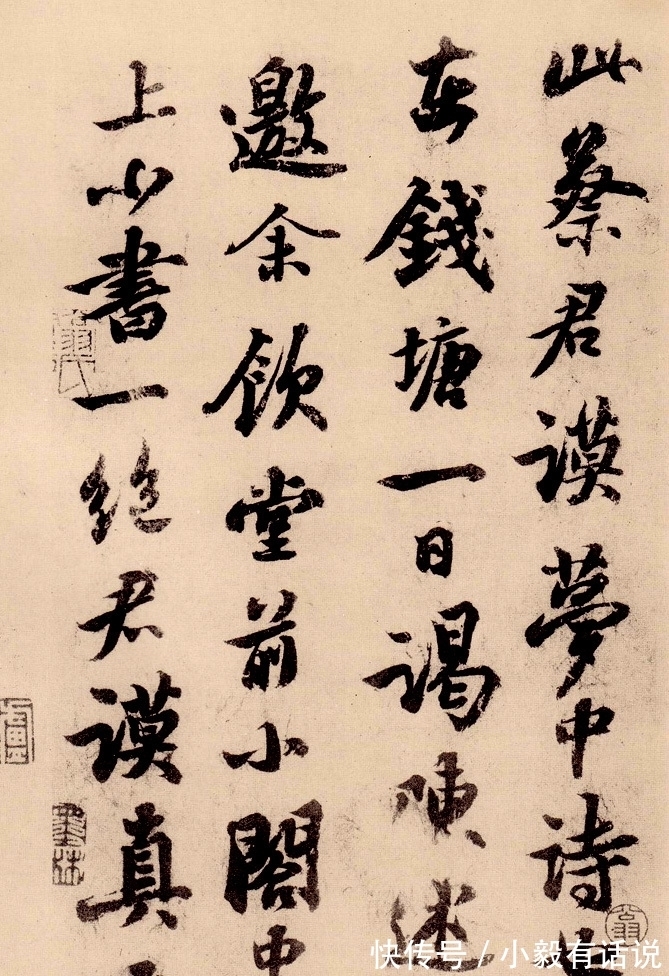 此蔡君謨夢中詩
在錢塘一日謁陳述
邀余飲堂前小閣中
上小書一絶君謨真
快传号/小毅有话说